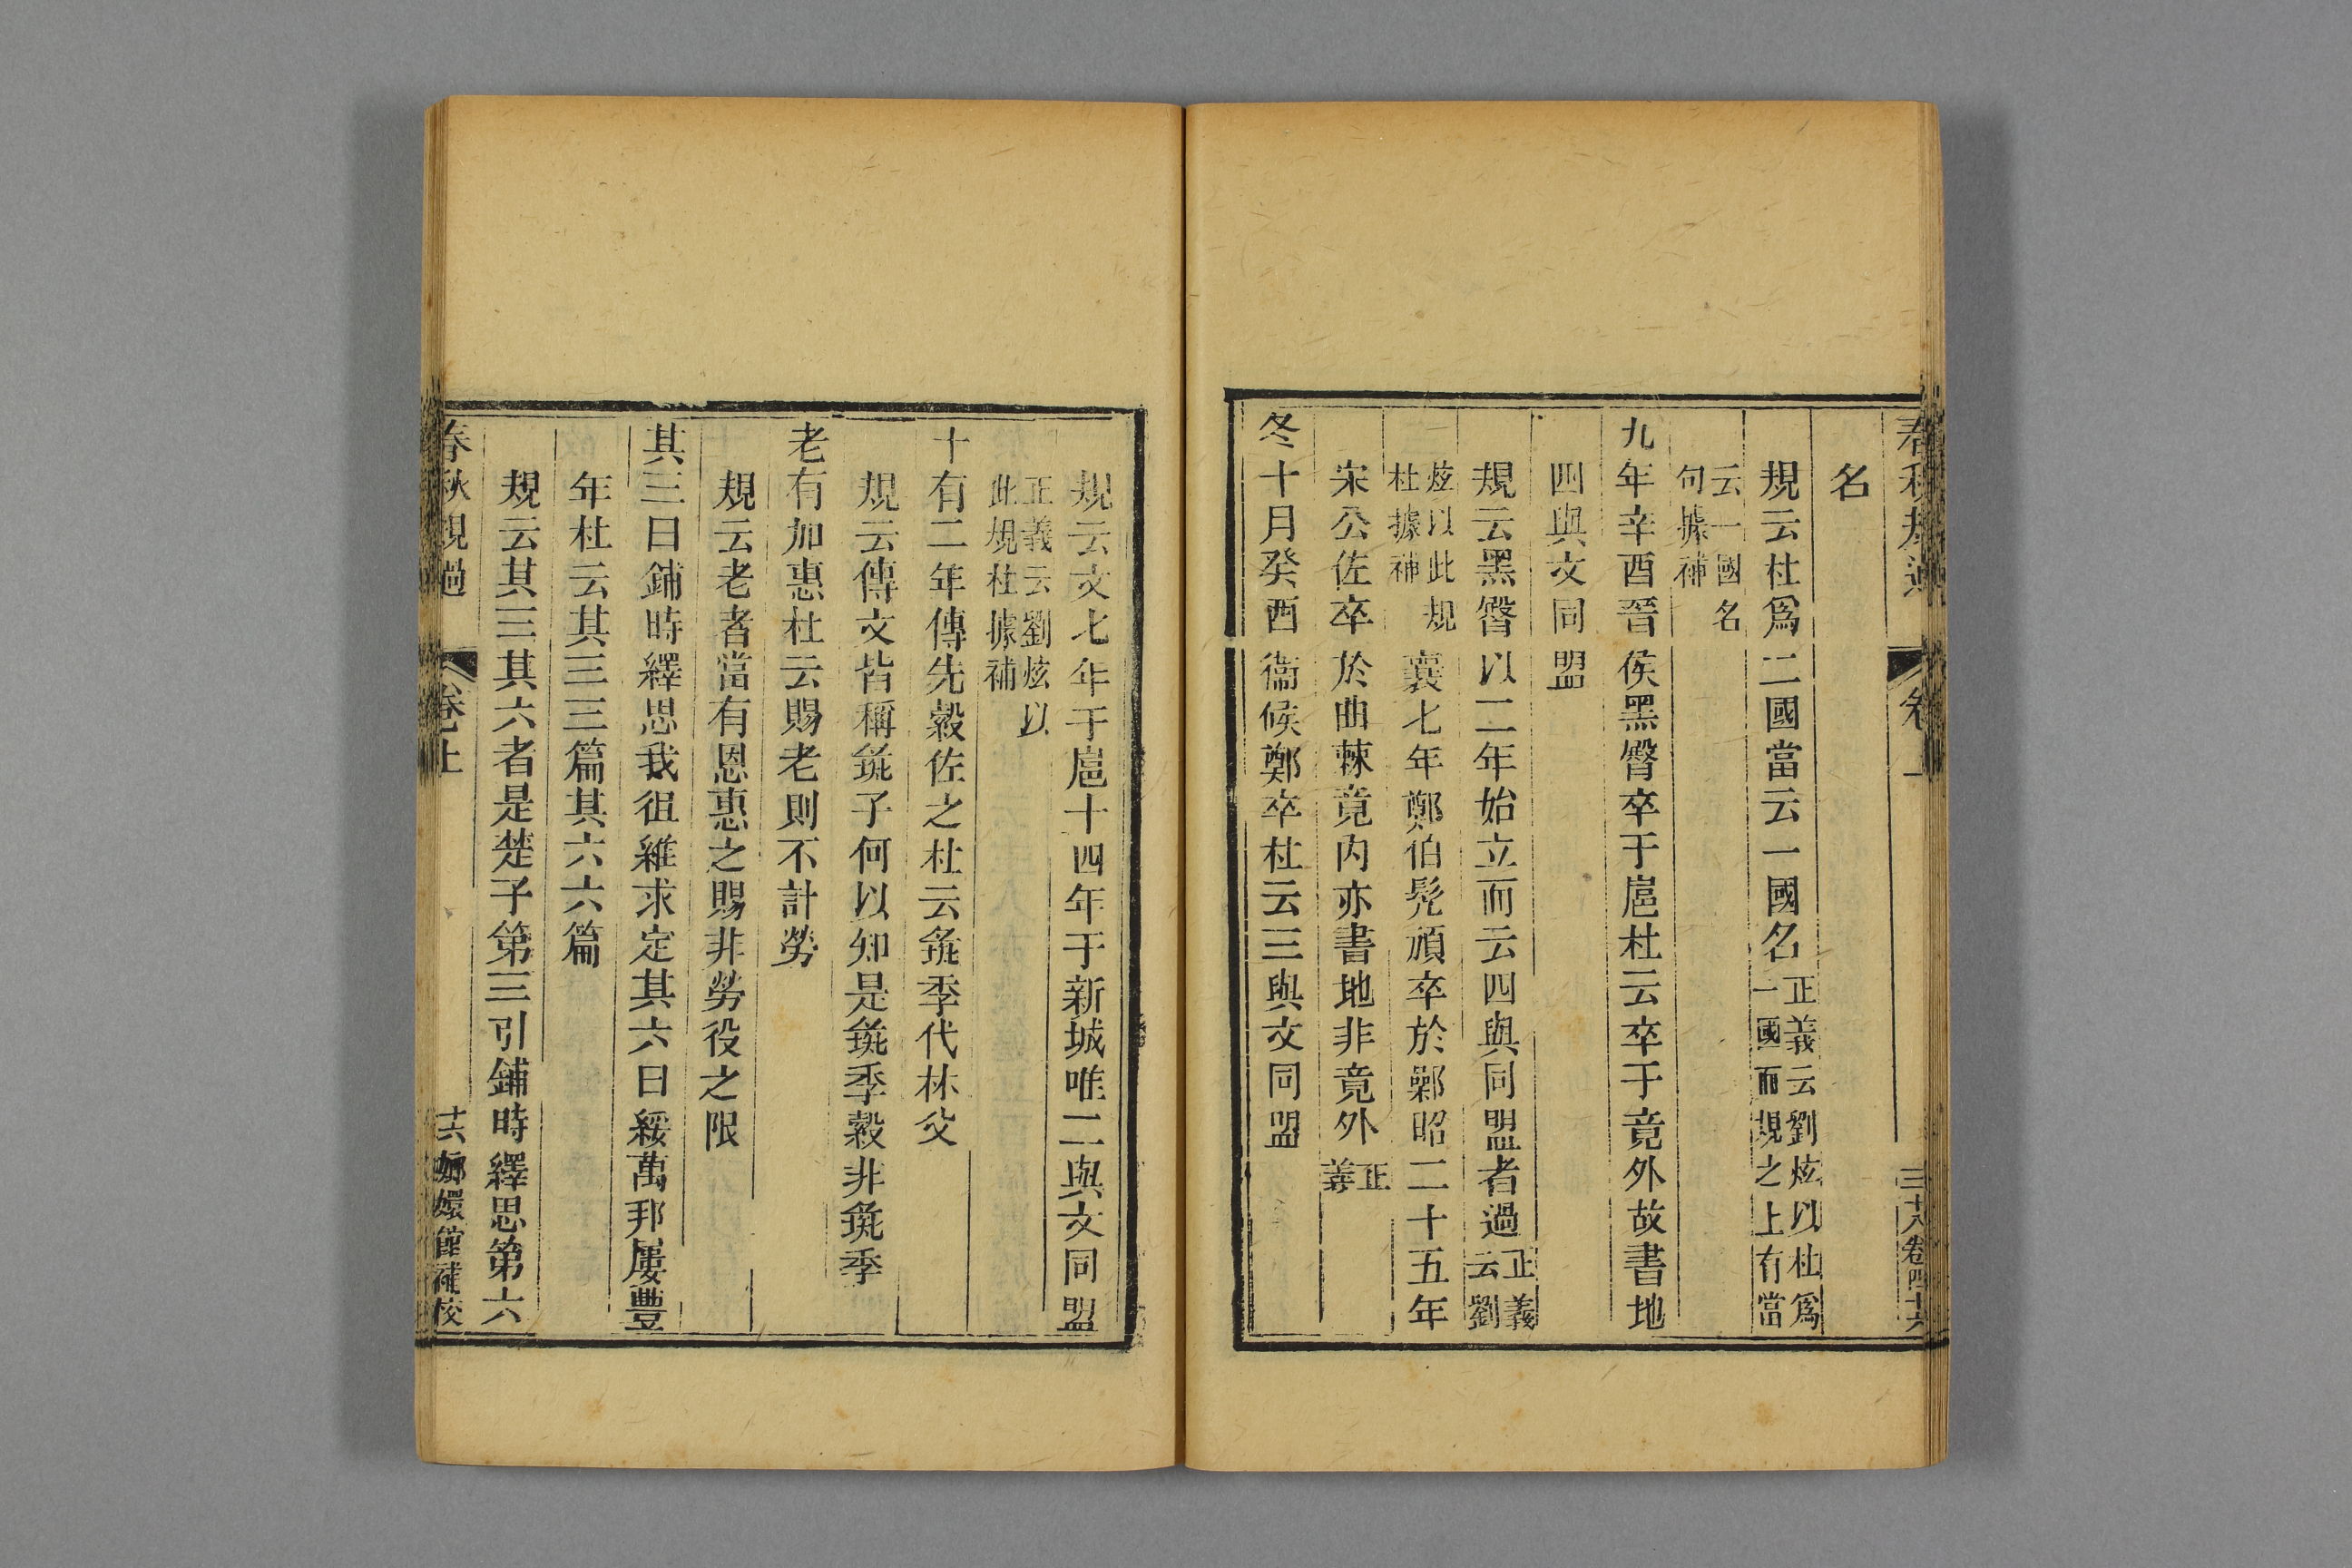 春秋規過 卷上 三十八卷四十六
名
規云杜爲二國當云一國名正義云劉炫以杜爲一國而規之上有當
云一國名句據補
九年辛酉晉侯黑臀卒于扈杜云卒于竟外故書地
四與文同盟
規云黑臀以二年始立而云四與同盟者過正義云劉
炫以此規杜據補襄七年鄭伯髡頑卒於鄵昭二十五年
宋公佐卒於曲棘竟內亦書地非竟外正義
冬十月癸酉衞候鄭卒杜云三與文同盟
規云文七年于扈十四年于新城唯二與文同盟
正義云劉炫以此規杜據補
十有二年傳先縠佐之杜云彘季代林父
規云傳文皆稱彘子何以知是彘季縠非彘季
老有加惠杜云賜老則不計勞
規云老者當有恩惠之賜非勞役之限
其三曰鋪時繹思我徂維求定其六曰綏萬邦屢豐
年杜云其三三篇其六六篇
規云其三其六者是楚子第三引鋪時繹思第六
春秋規過 卷上 十六 嫏嬛館補校